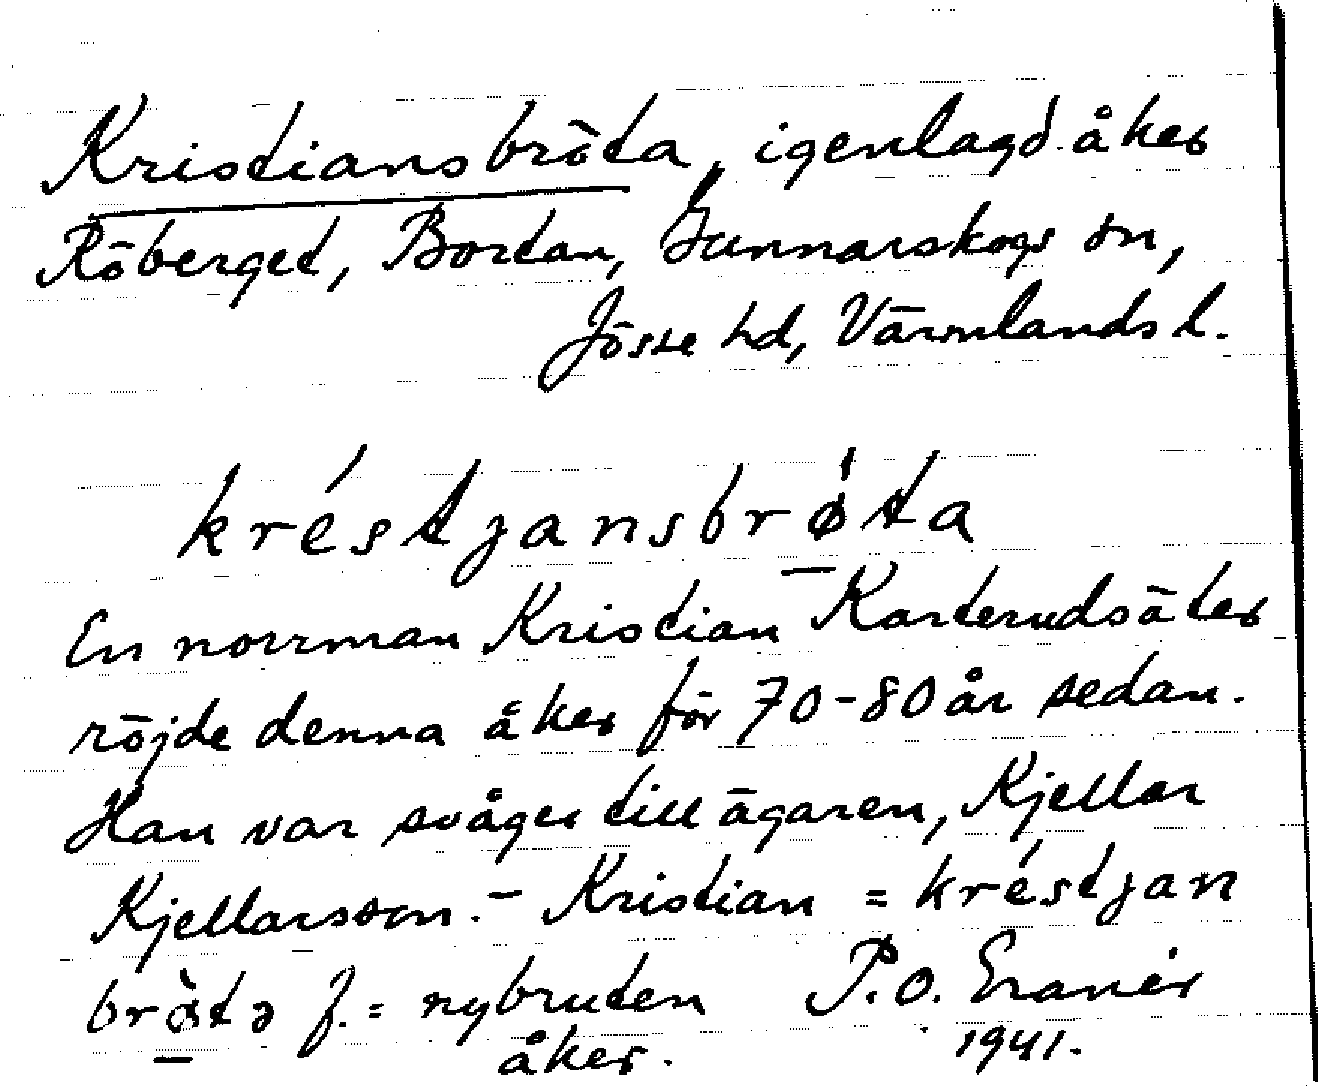 Kristiansbröta, igenlagd åker
Röberget, Bortan, Gunnarskogs sn,
Jösse hd, Värmlands l.
kréstjansbrø̲ta
En norrman Kristian Karterudsäter
röjde denna åker för 70-80 år sedan.
Han var svåger till ägaren, Kjellar
Kjellarsson. – Kristian = kréstjan
brø̲̀tə f. = nybruten P. O. Eranér
åker. 1941.